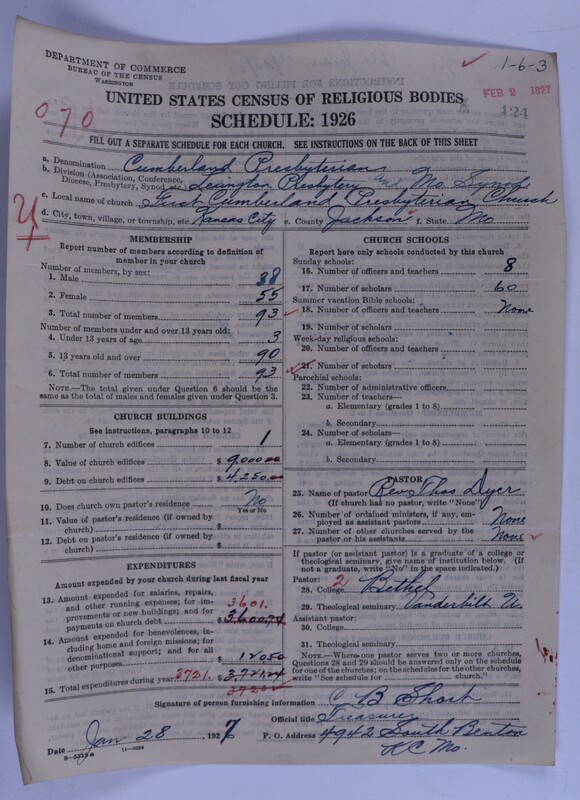 DEPARTMENT OF COMMERCE
BUREAU OF THE CENSUS
WASHINGTON
1-6-3
FEB 2 1927
424
070
UNITED STATES CENSUS OF RELIGIOUS BODIES
SCHEDULE: 1926
FILL OUT A SEPARATE SCHEDULE FOR EACH CHURCH. SEE INSTRUCTIONS ON THE BACK OF THIS SHEET
a. Denomination Cumberland Presbyterian
b. Division (Association, Conference, Diocese, Presbytery, Synod, etc.) Lexington Presbytery and Mo. Synod
c. Local name of church First Cumberland Presbyterian Church
d. City, town, village, or township, etc. Kansas City e. County Jackson f. State Mo
MEMBERSHIP
Report number of members according to definition of
member in your church
Number of members, by sex:
1. Male 38
2. Female 55
3. Total number of members 93
Number of members under and over 13 years old:
4. Under 13 years of age 3
5. 13 years old and over 90
6. Total number of members 93
NOTE.—The total given under Question 6 should be the
same as the total of males and females given under Question 3.
CHURCH BUILDINGS
See instructions, paragraphs 10 to 12
7. Number of church edifices 1
8. Value of church edifices $ 9,000.00
9. Debt on church edifices $ 4,250.00
10. Does church own pastor's residence? No
Yes or No
11. Value of pastor's residence (if owned by
church) $
12. Debt on pastor's residence (if owned by
church) $
EXPENDITURES
Amount expended by church during last fiscal year
13. Amount expended for salaries, repairs,
and other running expenses; for im-
provements or new buildings; and for
payments on church debt $ 3,600.74
3601.
14. Amount expended for benevolences, in-
cluding home and foreign missions; for
denominational support; and for all
other purposes 120.50
15. Total expenditures during year 3721. $ 3,721.24
CHURCH SCHOOLS
Report here only schools conducted by this church
Sunday schools:
16. Number of officers and teachers 8
17. Number of scholars 60
Summer vacation Bible schools:
18. Number of officers and teachers None
19. Number of scholars
Week-day religious schools:
20. Number of officers and teachers
21. Number of scholars
Parochial schools:
22. Number of administrative officers
23. Number of teachers—
a. Elementary (grades 1 to 8)
b. Secondary
24. Number of scholars—
a. Elementary (grades 1 to 8)
b. Secondary
PASTOR
25. Name of pastor Rev. Thos Dyer
(If church has no pastor, write "None")
26. Number of ordained ministers, if any, em-
ployed as assistant pastors None
27. Number of other churches served by the
pastor or his assistants None
If pastor (or assistant pastor) is a graduate of a college or
theological seminary, give name of institution below. (If
not a graduate, write "No" in the space indicated.)
Pastor: 2
28. College Bethel
29. Theological seminary Vanderbilt U.
Assistant pastor:
30. College
31. Theological seminary
NOTE.—Where one pastor serves two or more churches,
Questions 28 and 29 should be answered only on the schedule
for one of the churches; on the schedules for the other churches,
write "See schedule for church."
Signature of person furnishing information C B Short
Official title Treasurer
Date Jan 28, 1927 P. O. Address 4942 South Benton
K.C. Mo.